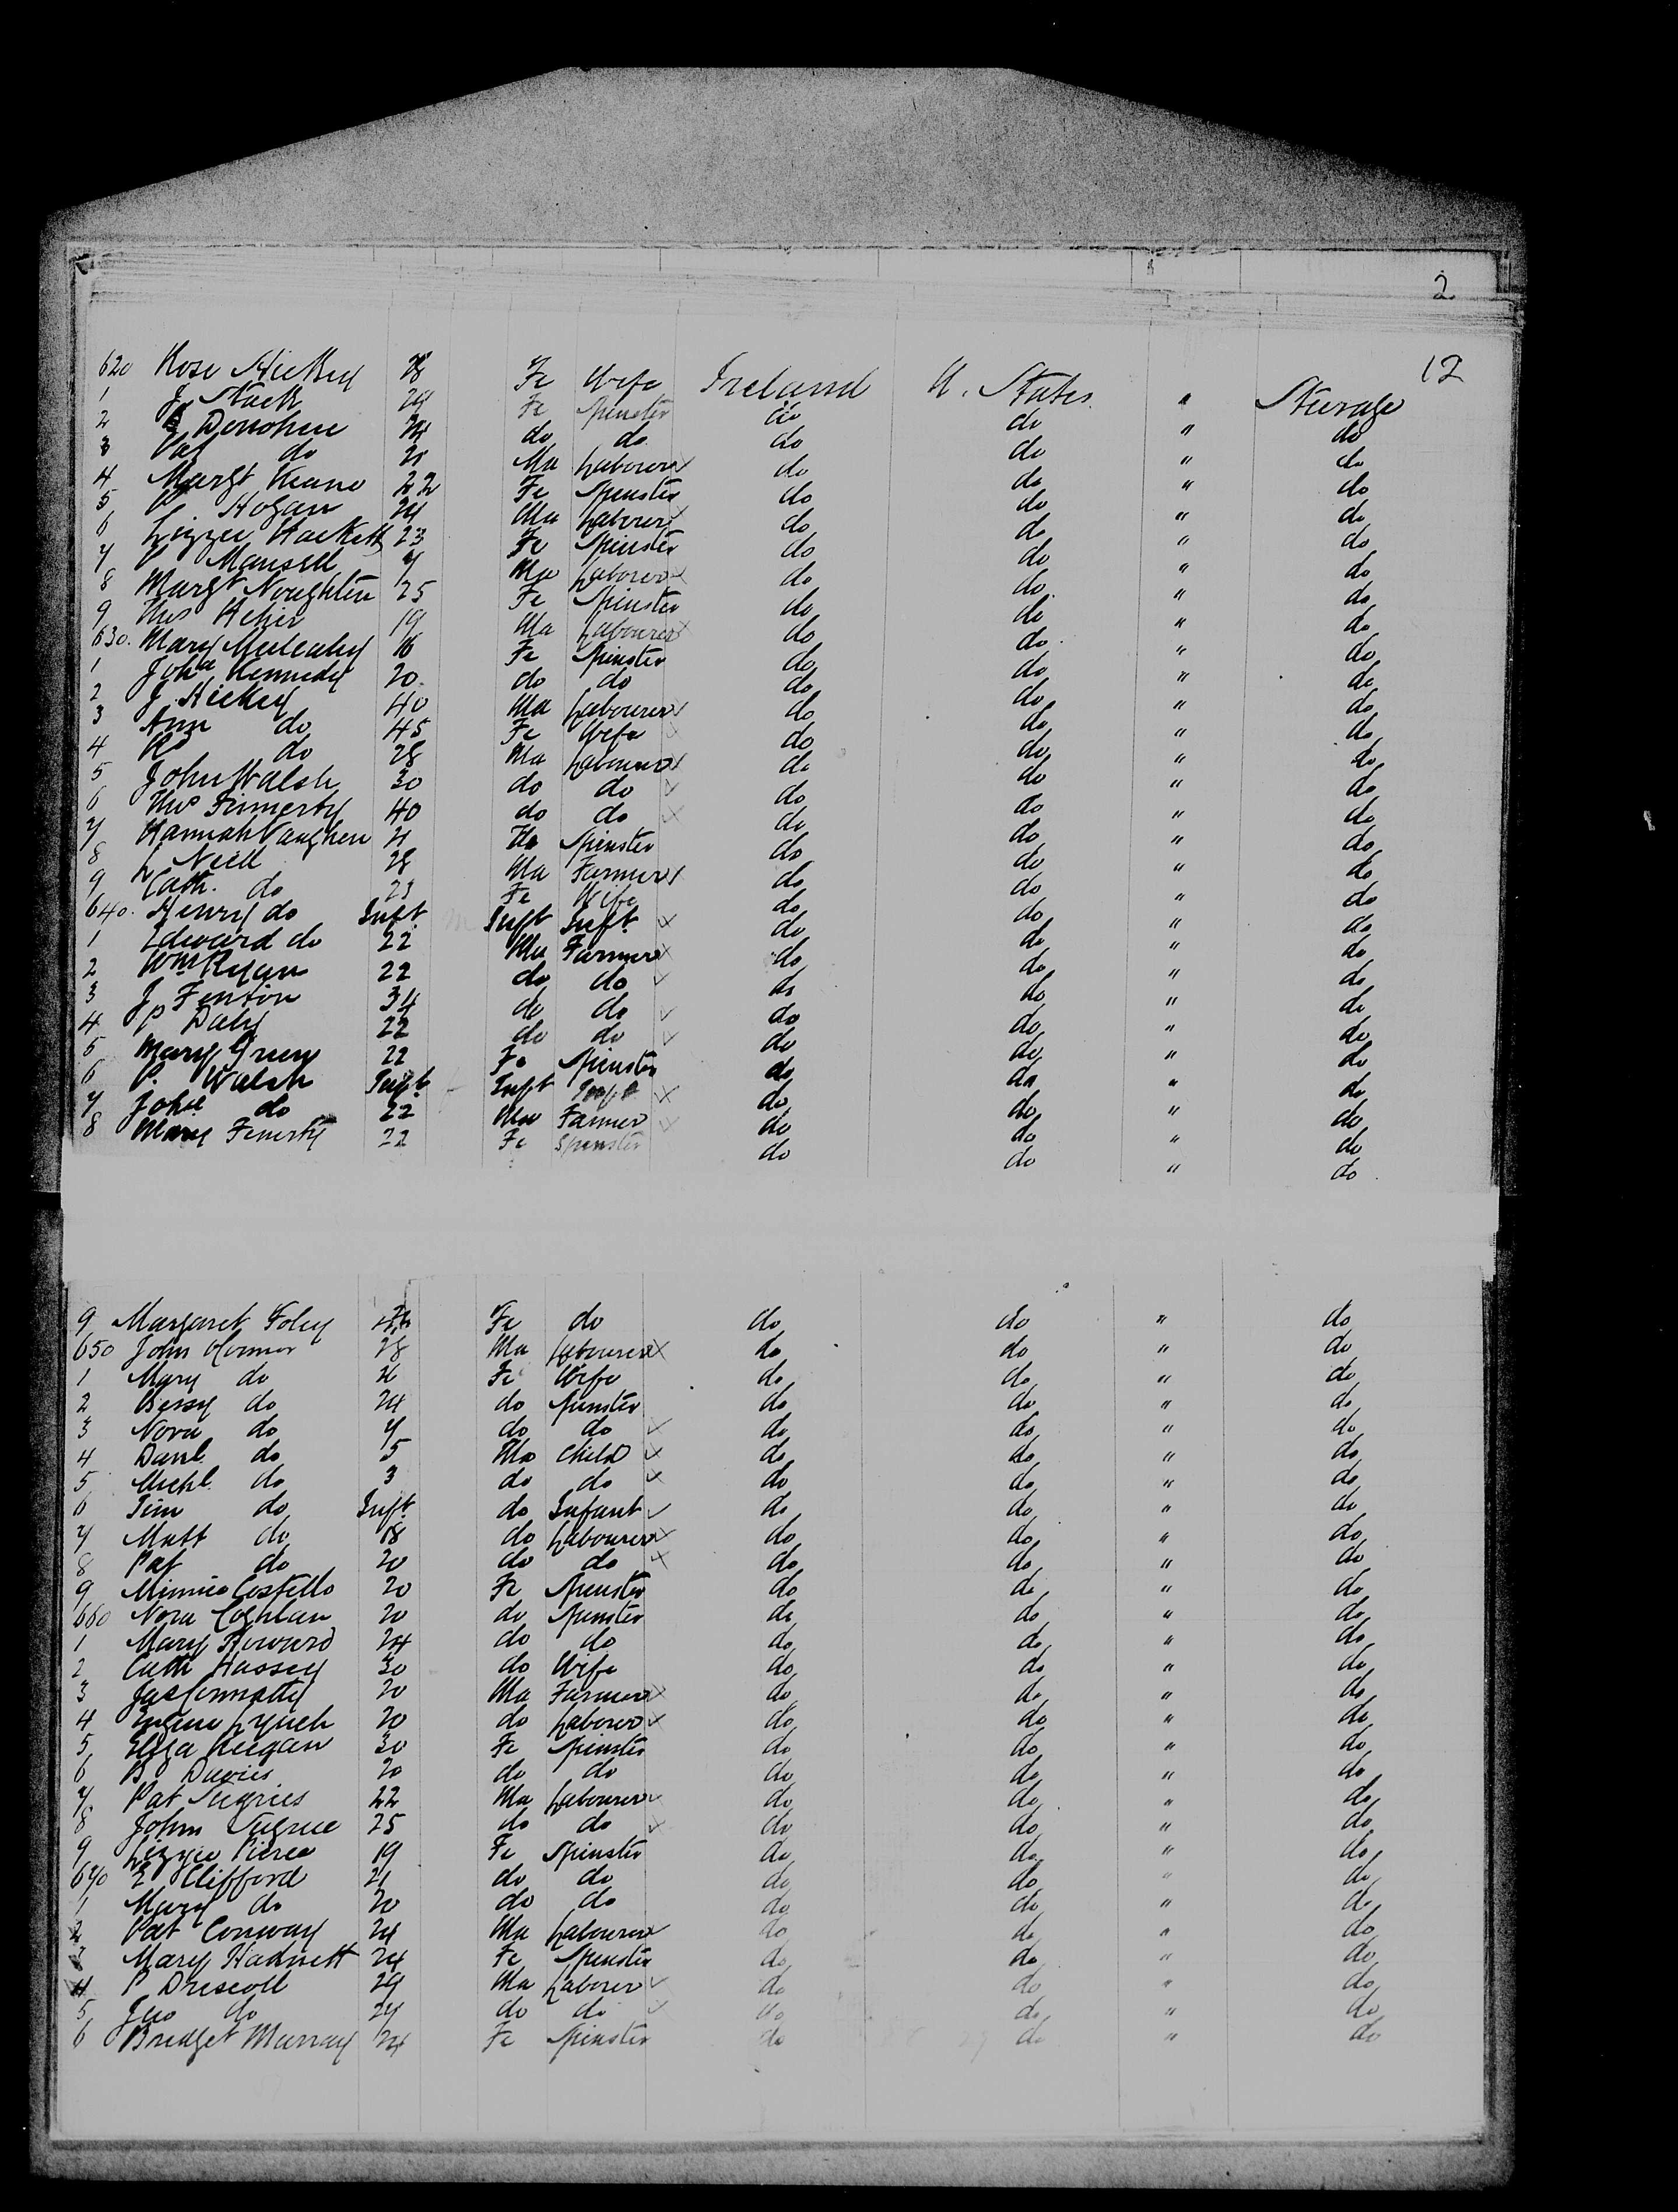 2
12
620 Rose Hickey 28 Fe Wife Ireland U. States " Steerage
1 J. Stack 24 Fe Spinster do do " do
2 Donohue 24 do do do do " do
3 Pat do 21 Ma Laborer do do " do
4 Margt Keane 22 Fe Spinster do do " do
5 P Hogan 24 Ma Laborer do do " do
6 Lizzie Hackett 23 Fe Spinster do do " do
7 P Mansell Ma Laborer do do " do
8 Margt Noughten 25 Fe Spinster do do " do
9 Thos Hehir 19 Ma Labourer do do " do
630. Mary Mulcahy 16 Fe Spinster do do " do
1 Joha Kennedy 20 do do do do " do
2 J. Hickey 40 Ma Labourer do do " do
3 Ann do 45 Fe Wife do do " do
4 do 28 Ma Labourer do do " do
5 John Walsh 30 do do do do " do
6 Thos Finnerty 40 do do do do " do
7 Hannah Vaughen 21 Spinster do do " do
8 L Neill 28 Ma Farmer do do " do
9 Cath. do 23 Fe Wife do do " do
640. Henry do Inft. Inft Inft do do " do
1 Edward do 22 Ma Farmer do do " do
2 Wm Ryan 22 do do do do " do
3 J Fenton 34 do do do do " do
4 P Daly 22 do do do do " do
5 Mary Green 22 Fe Spinster do do " do
6 P. Walsh Inft Inft Inft do do " do
7 do 22 Ma Farmer do do " do
8 Mary Finerty 22 Fe Spinster do do " do
9 Margaret Foley Fe do do do " do
650 John OConnor 28 Ma Labourer do do " do
1 Mary do 26 Fe Wife do do " do
2 Bessy do 24 do Spinster do do " do
3 Nora do 7 do do do do " do
4 Danl. do 5 Ma Child do do " do
5 Michl. do 3 do do do do " do
6 Tim do Inft. do Infant do do " do
7 Matt do 18 do Labourer do do " do
8 Pat do 20 do do do do " do
9 Minnie Costello 20 Fe Spinster do do " do
660 Nora Coghlan 20 do Spinster do do " do
1 Mary Howard 24 do do do do " do
2 Cath Hassey 30 do Wife do do " do
3 Jas 20 Ma Farmer do do " do
4 Eugene Lynch 20 do Laborer do do " do
5 Eliza Keegan 30 Fe Spinster do do " do
6 B Davies 20 do do do do " do
7 Pat Sugrues 22 Ma Labourer do do " do
8 John Sugrue 25 do do do do " do
9 Lizzie Pierce 19 Fe Spinster do do " do
670 E Clifford 21 do do do do " do
1 Mary do 20 do do do do " do
2 Pat Conway 24 Ma Labourer do do " do
3 Mary Hadnett 24 Fe Spinster do do " do
4 P Driscoll 29 Ma Laborer do do " do
5 Jno do 24 do do do do " do
6 Bridget Murray 24 Fe Spinster do do " do